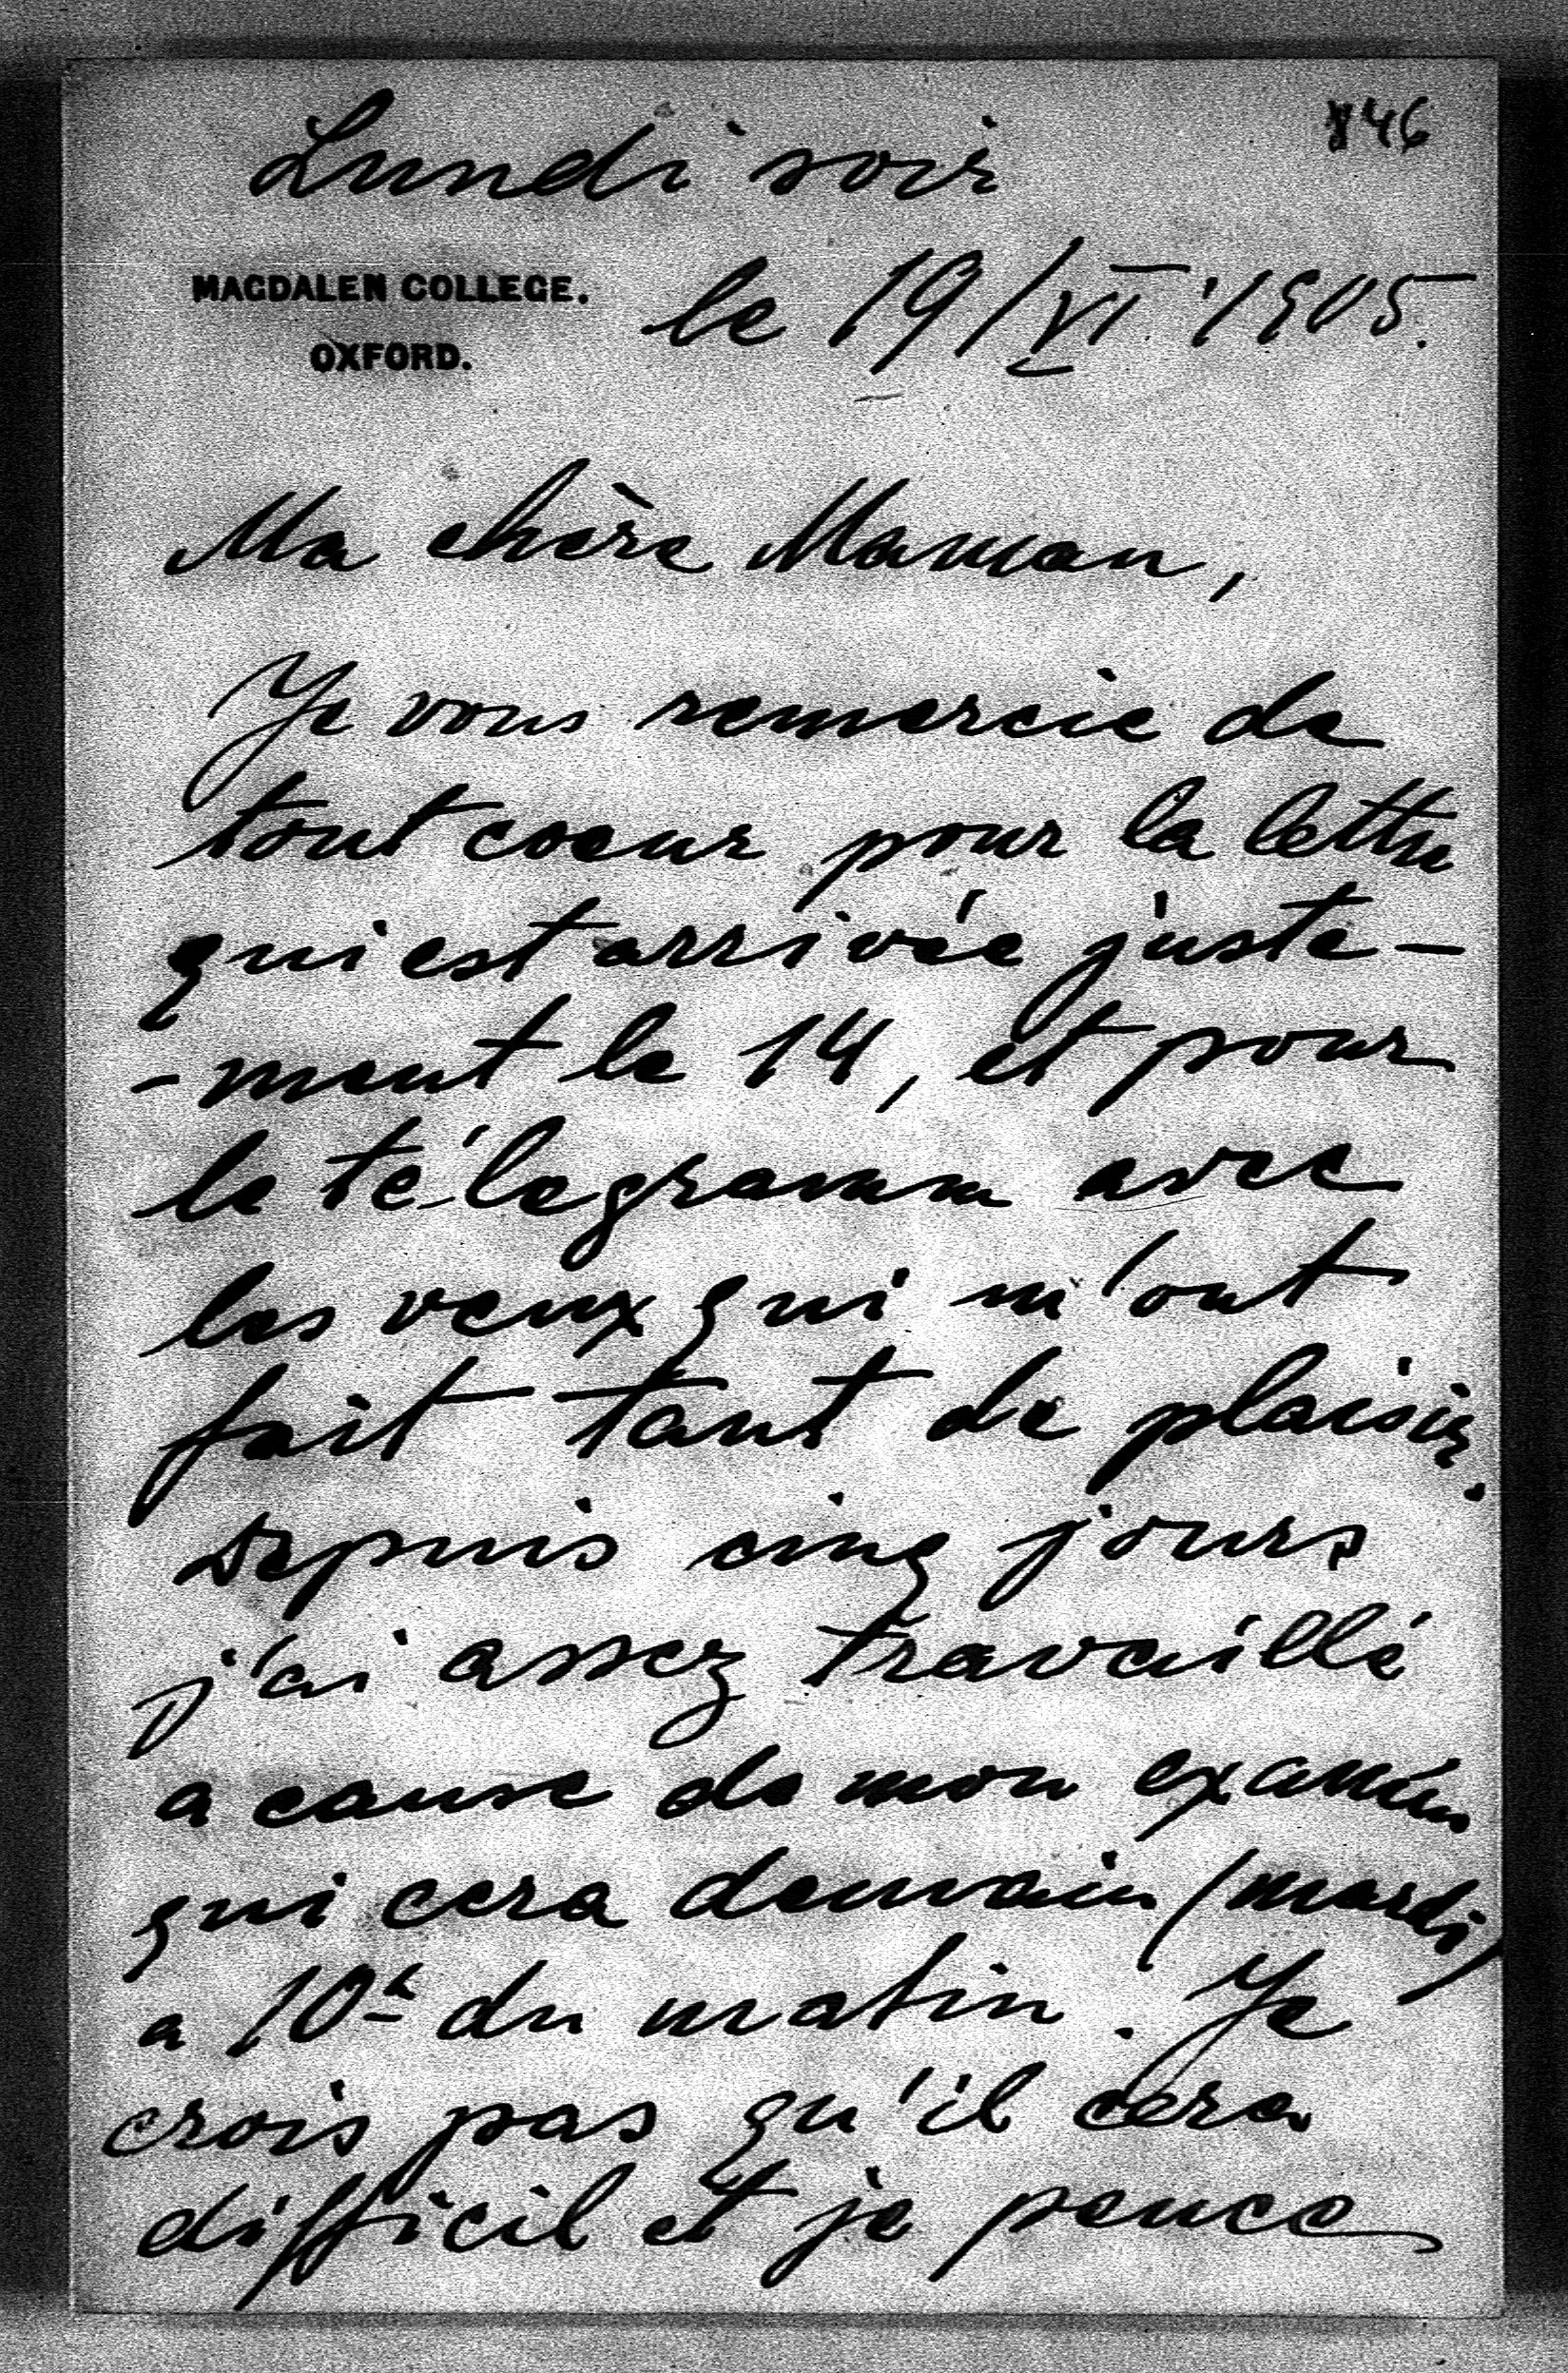 846
Lundi soir
MAGDALEN COLLEGE.
OXFORD.
le 19/VI '1905.
Ma chère Maman,
Je vous remercie de
tout coeur pour la lettre
qui est arrivée juste-
-ment le 14, et pour
le télegramm avec
les veux qui m'ont
fait tant de plaisir.
Depuis cinq jours
j'ai assez travaillé
a cause de mon examin
qui cera demain (mardi)
a 10h du matin. Je
crois pas qu'il cera
difficil et je pence